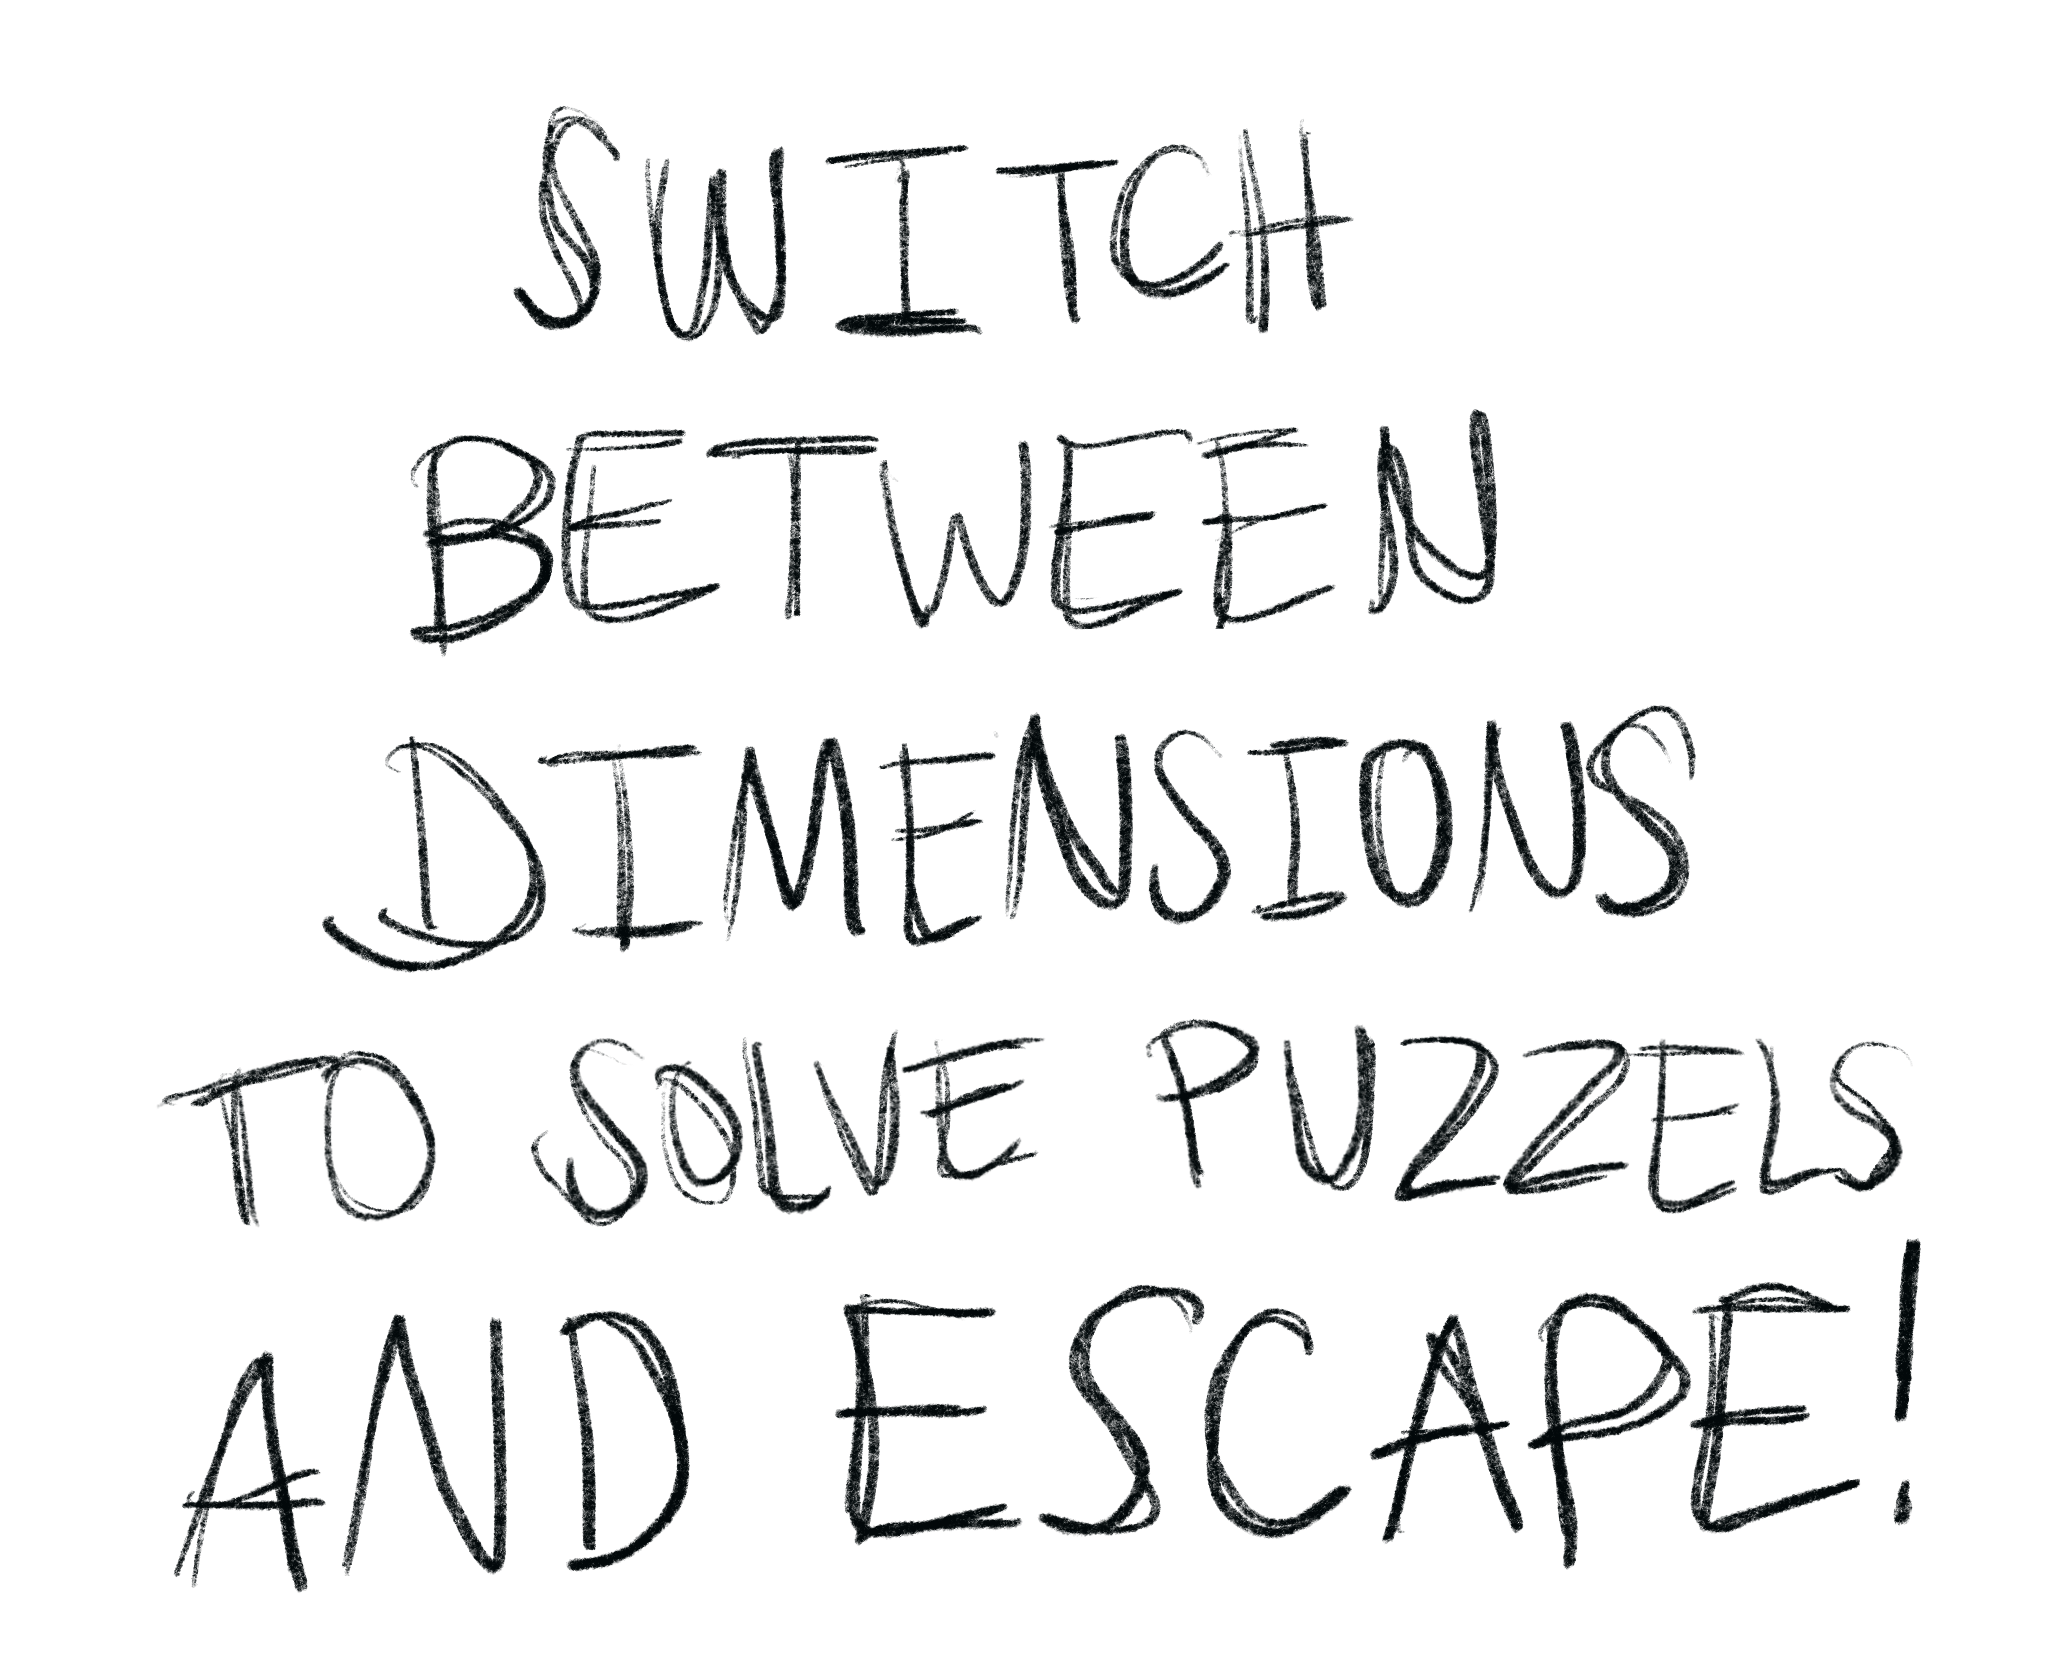 SWITCH
BETWEEN
DIMENSIONS
TO SOLVE PUZZELS
AND ESCAPE!